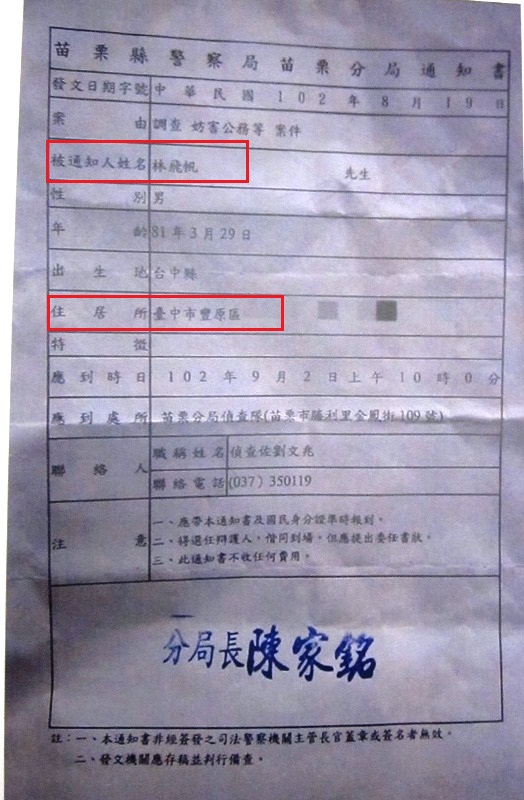 苗栗縣警察局苗栗分局通知書
發文日期字號 中華民國102年8月19日
案由 調查 妨害公務等 案件
被通知人姓名 林飛帆 先生
性別 男
年齡 81年3月29日
出生地 台中縣
住居所 臺中市豐原區
特徵
應到時日 102年9月2日上午10時0分
應到處所 苗栗分局偵查隊(苗栗市勝利里金鳳街109號)
聯絡人 職稱姓名 偵查佐劉文兆
聯絡電話 (037)350119
注意 一、應帶本通知書及國民身分證準時報到。
二、得選任辯護人,偕同到場,但應提出委任書狀。
三、此通知書不收任何費用。
分局長陳家銘
註:一、本通知書非經簽發之司法警察機關主管長官蓋章或簽名者無效。
二、發文機關應存稿並判行備查。